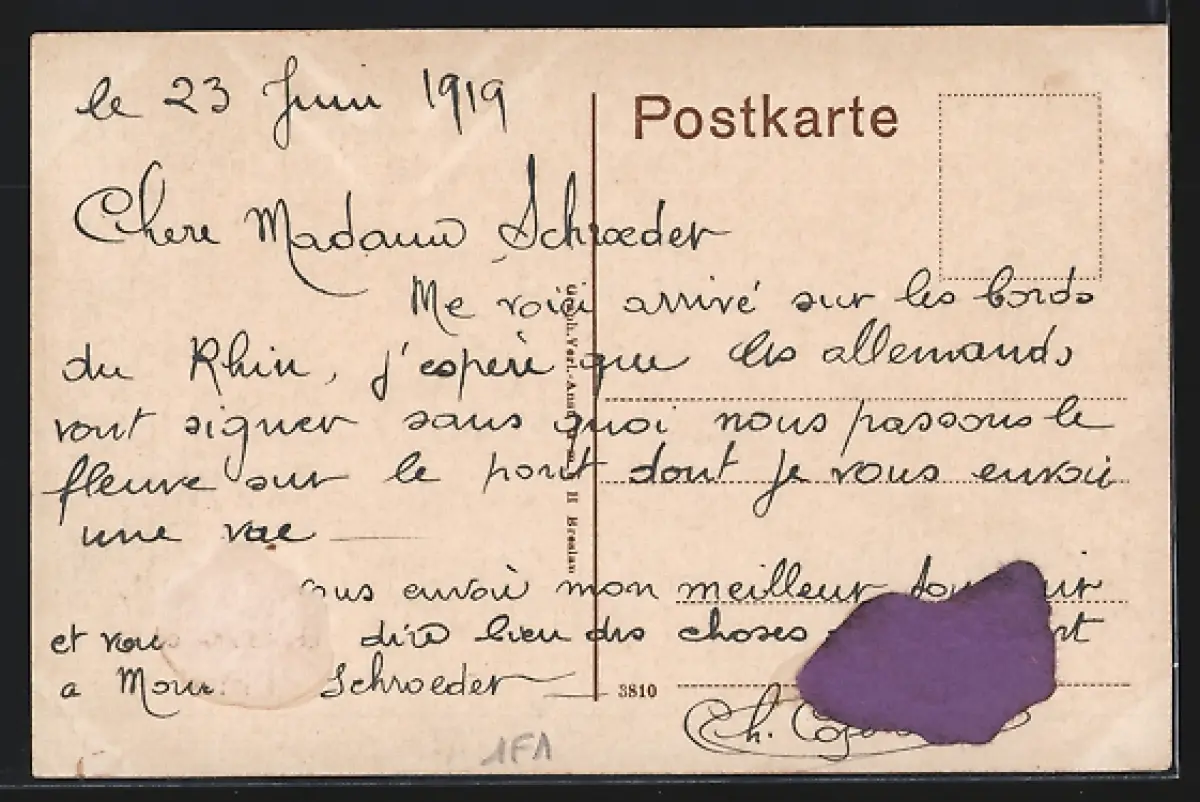 le 23 Juin 1919
Postkarte
Chere Madame Schroeder
Me voici arrivé sur les bords
du Rhin, j'espère que les allemands
vont signer sans quoi nous passons le
fleuve sur le pont dont je vous envoie
une vue
envoie mon meilleur
et vous dire bien des choses
a Schroeder
3810
Ch.
1F1
Breslau